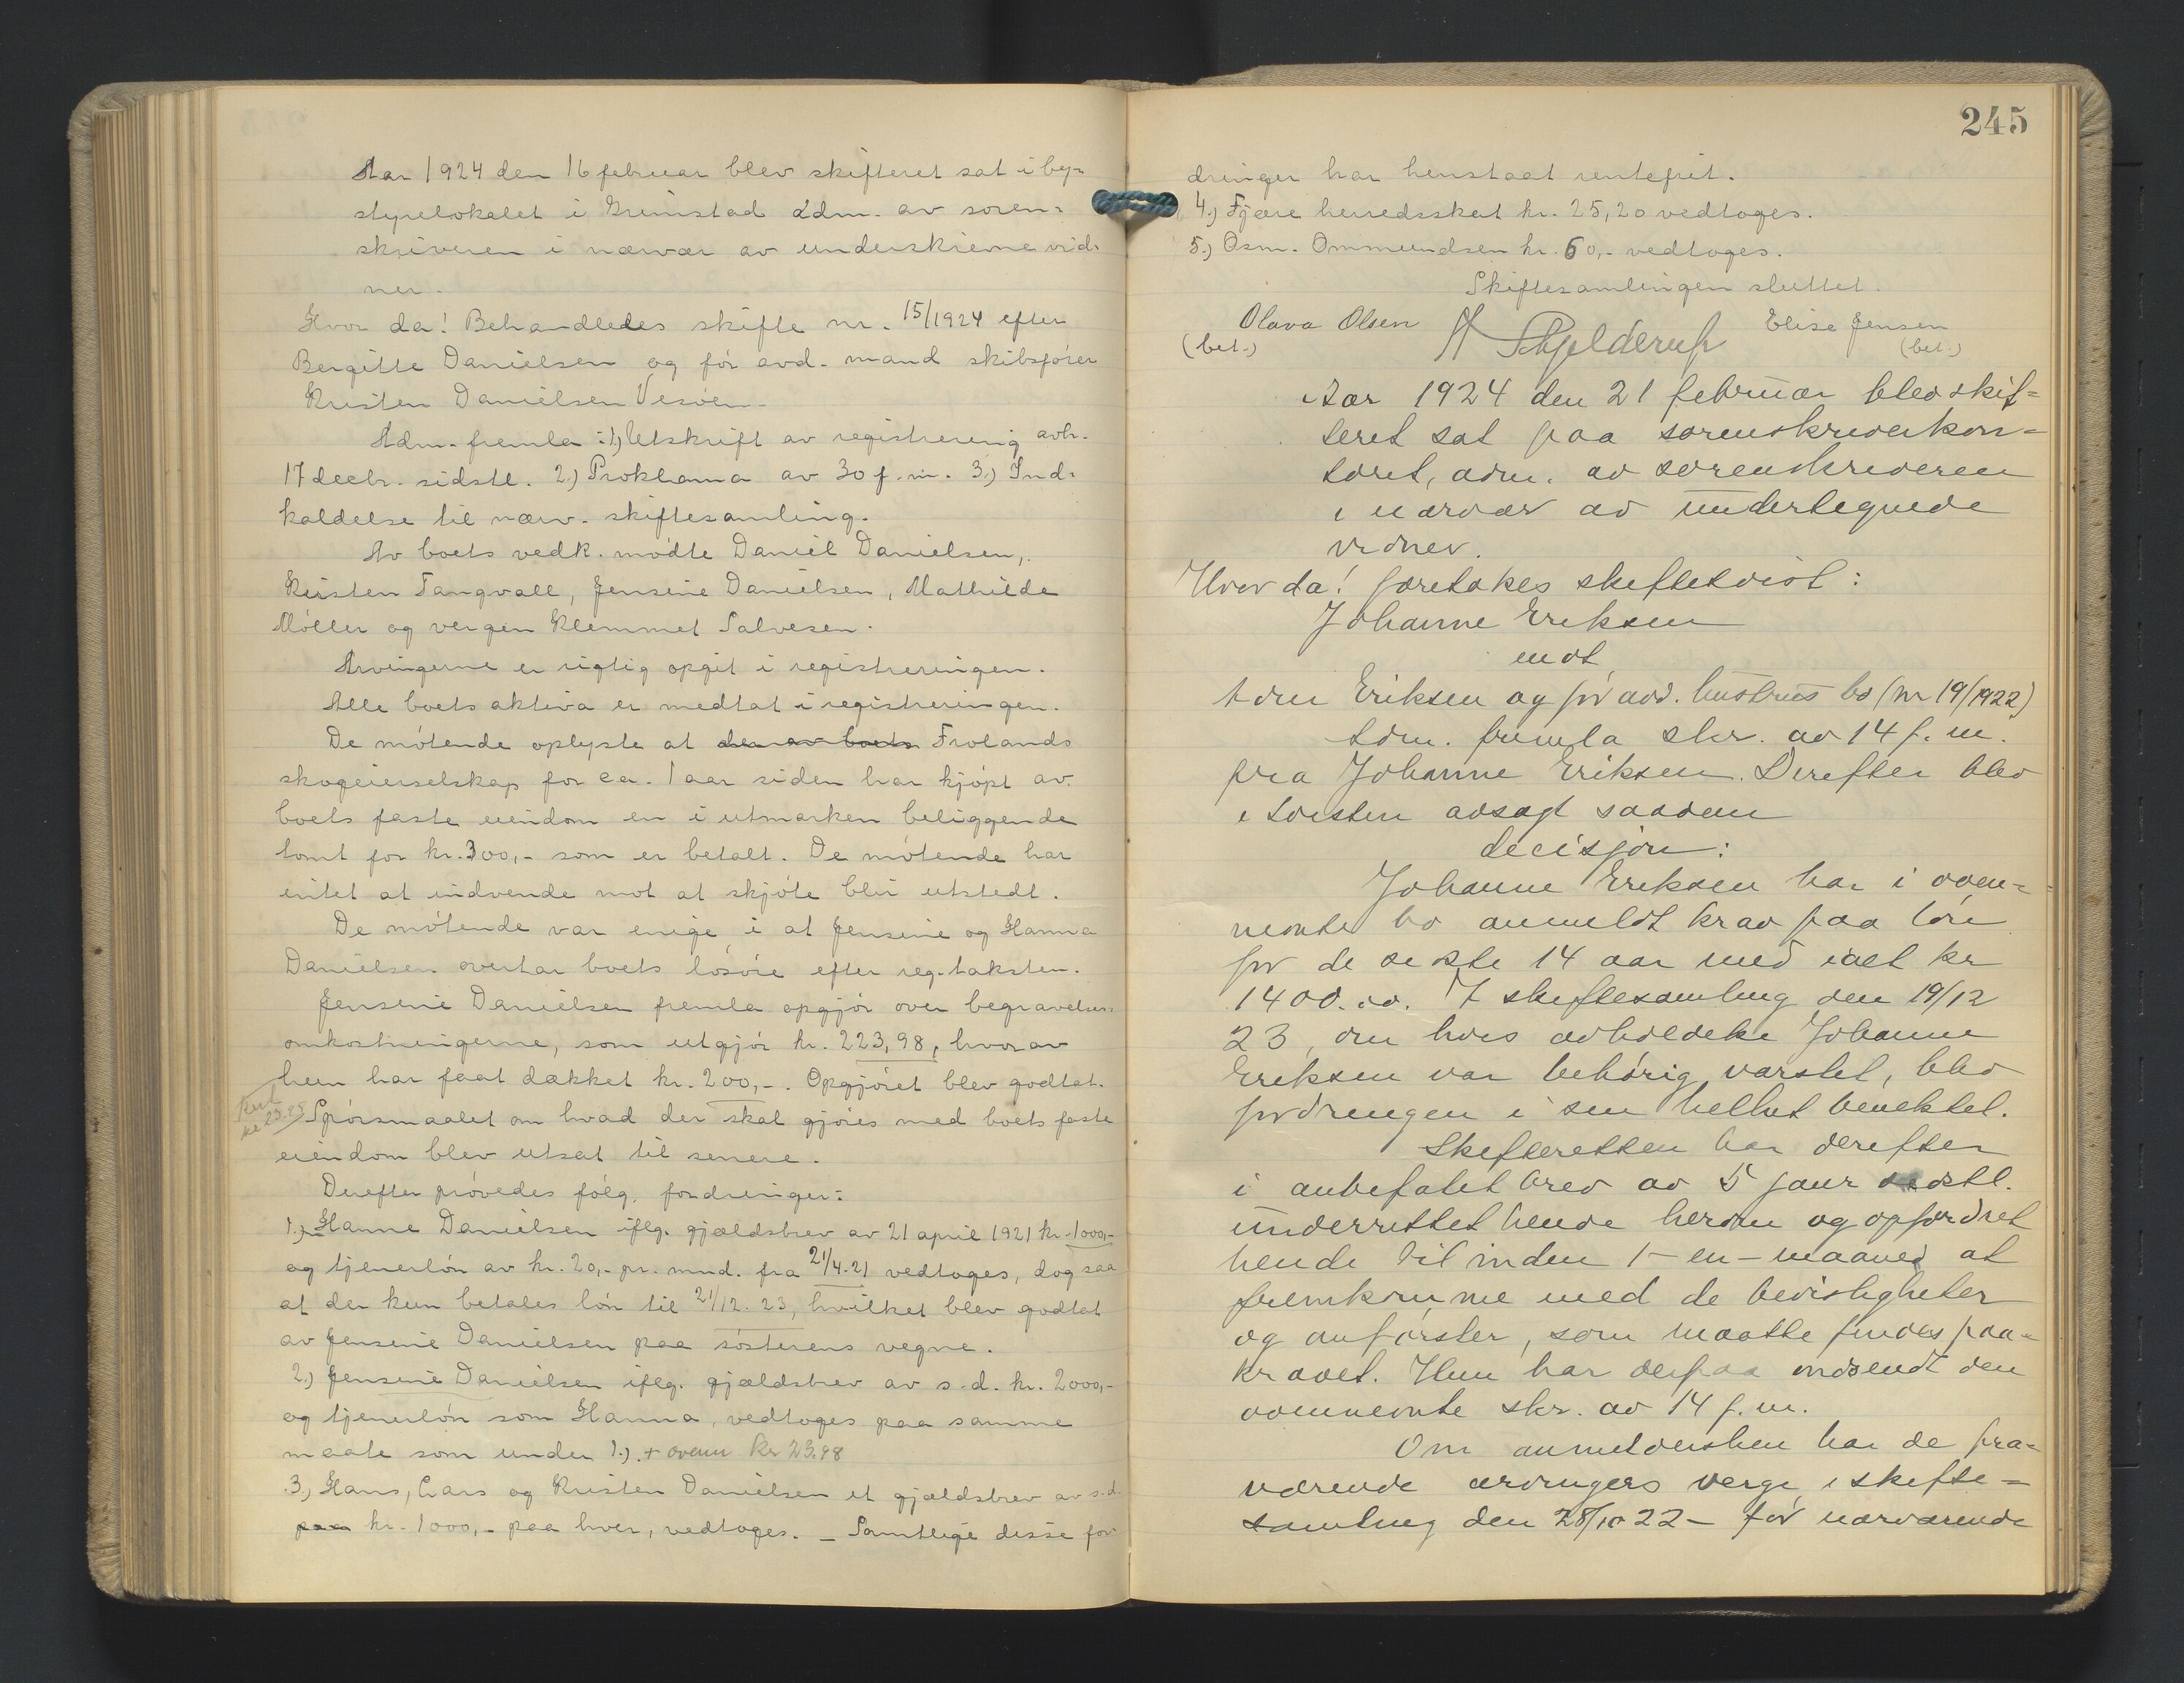 Aar 1924 den 16 februar blev skifteret sat i by-
styrelokalet i Grimstad adm. av soren-
skriveren i nærvær av underskrevne vid-
ner.
Hvor da! Behandledes skifte nr. 15/1924 efter
Bergitte Danielsen og før avd. mand skibsfører
Kristen Danielsen Vesøen.
Adm. fremla: 1) Utskrift av registrering avh.
17 decbr. sidstl. 2.) Proklama av 30 f. m. 3.) Ind-
kaldelse til nærv. skiftesamling.
Av boets vedk. mødte Daniel Danielsen,
Kristen Tangvall, Jensine Danielsen, Mathilde
Møller og vergen Klemmet Salvesen.
Arvingerne er rigtig opgit i registreringen.
Alle boets aktiva er medtat i registreringen.
De møtende oplyste at den av boets Frolands
skogeierselskap for ca. 1 aar siden har kjøpt av
boets faste eiendom en i utmarken beliggende
tomt for kr. 300,- som er betalt. De møtende har
intet at indvende mot at skjøte blir utstedt.
De møtende var enige i at Jensine og Hanna
Danielsen overtar boets løsøre efter reg. taksten.
Jensine Danielsen fremla opgjør over begravelses-
omkostningerne, som utgjør kr. 223,98, hvorav
hun har faat dækket kr. 200,-. Opgjøret blev godtat.
Rest kr 23.98
Spørsmaalet om hvad der skal gjøres med boets faste
eiendom blev utsat til senere.
Derefter prøvedes følg. fordringer:
1.) Hanne Danielsen iflg. gjældsbrev av 21 april 1921 kr. 1000,-
og tjenerløn av kr. 20,- pr. mnd. fra 21/4-21 vedtoges, dog saa
at der kun betales løn til 21/12. 23, hvilket blev godtat
av Jensine Danielsen paa søsterens vegne.
2.) Jensine Danielsen iflg. gjældsbrev av s. d. kr. 2000,-
og tjenerløn som Hanna, vedtoges paa samme
maate som under 1.). + ovenn kr 23.98
3.) Hans, Lars og Kristen Danielsen et gjældsbrev av s. d.
paa kr. 1000,- paa hver, vedtoges. - Samtlige disse for-
245
dringer har henstaat rentefrit.
4.) Fjære herredsskat kr. 25,20 vedtoges.
5.) Osm. Ommundsen kr. 60,- vedtoges.
Skiftesamlingen sluttet.
Olava Olsen Schjelderup Elise Jensen
(bet.) (bet.)
Aar 1924 den 21 februar blev skif-
teret sat paa sorenskriverkon-
toret, adm. av sorenskriveren
i nærvær av undertegnede
vidner.
Hvor da! foretokes skiftetvist:
Johanne Eriksen
mot
Tom Eriksen og før avd. hustrus bo (nr 19/1922)
Adm. fremla skr. av 14 f. m.
fra Johanne Eriksen. Derefter blev
i tvisten avsagt saadan
decisjon:
Johanne Eriksen har i oven-
nevnte bo anmeldt krav paa løn
for de siste 14 aar med ialt kr
1400.00. I skiftesamling den 19/12
23, om hvis avholdelse Johanne
Eriksen var behørig varslet, blev
fordringen i sin helhet benektet.
Skifteretten har derefter
i anbefalet brev av 5 janr sidstl.
underrettet hende herom og opfordret
hende til inden 1 - en - maaned at
fremkomme med de bevisligheter
og anførsler, som maatte findes paa-
krævet. Hun har derpaa indsendt den
ovennevnte skr. av 14 f. m.
Om anmeldersken har de fra-
værende arvingers verge i skifte-
samling den 28/10 22 - før nærværende